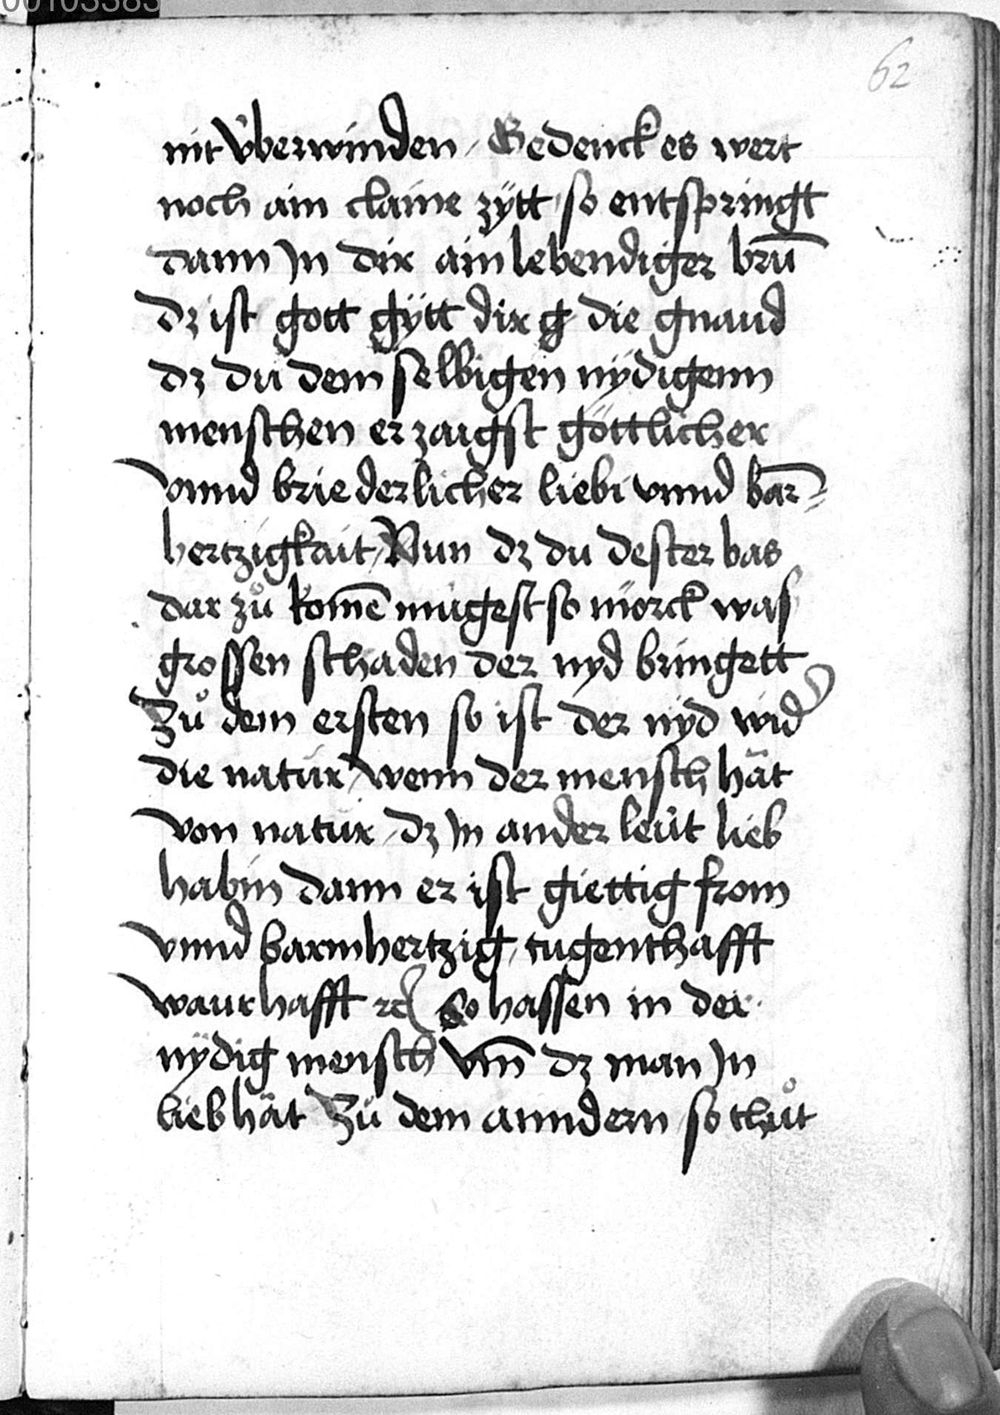 00103383
62
nit v̈berwinden / Gedenck es wert
noch ain claine zÿtt / so entspringt
dann Jn dir ain lebendiger brū
dz ist gott gÿtt dir g die gnaud
dz du dem selbigen nÿdigenn
menschen erzaigst göttlicher
vnnd briederlicher liebi vnnd bar̄=
hertzigkait / Nun dz du dester bas
dar zů komē mügest so mörck was
grossen schaden der nyd bringett
Zů dem ersten so ist der nÿd wid
die natúr / wenn der mensch hăt
von natúr / dz Jn ander leút lieb
habin dann er ist giettig from
vnnd barmhertzig / tugenthafft
waurhafft rc̄ So hassen in der
nÿdig mensch vm̄ dz man Jn
lieb hăt Zů dem anndern / so thůt